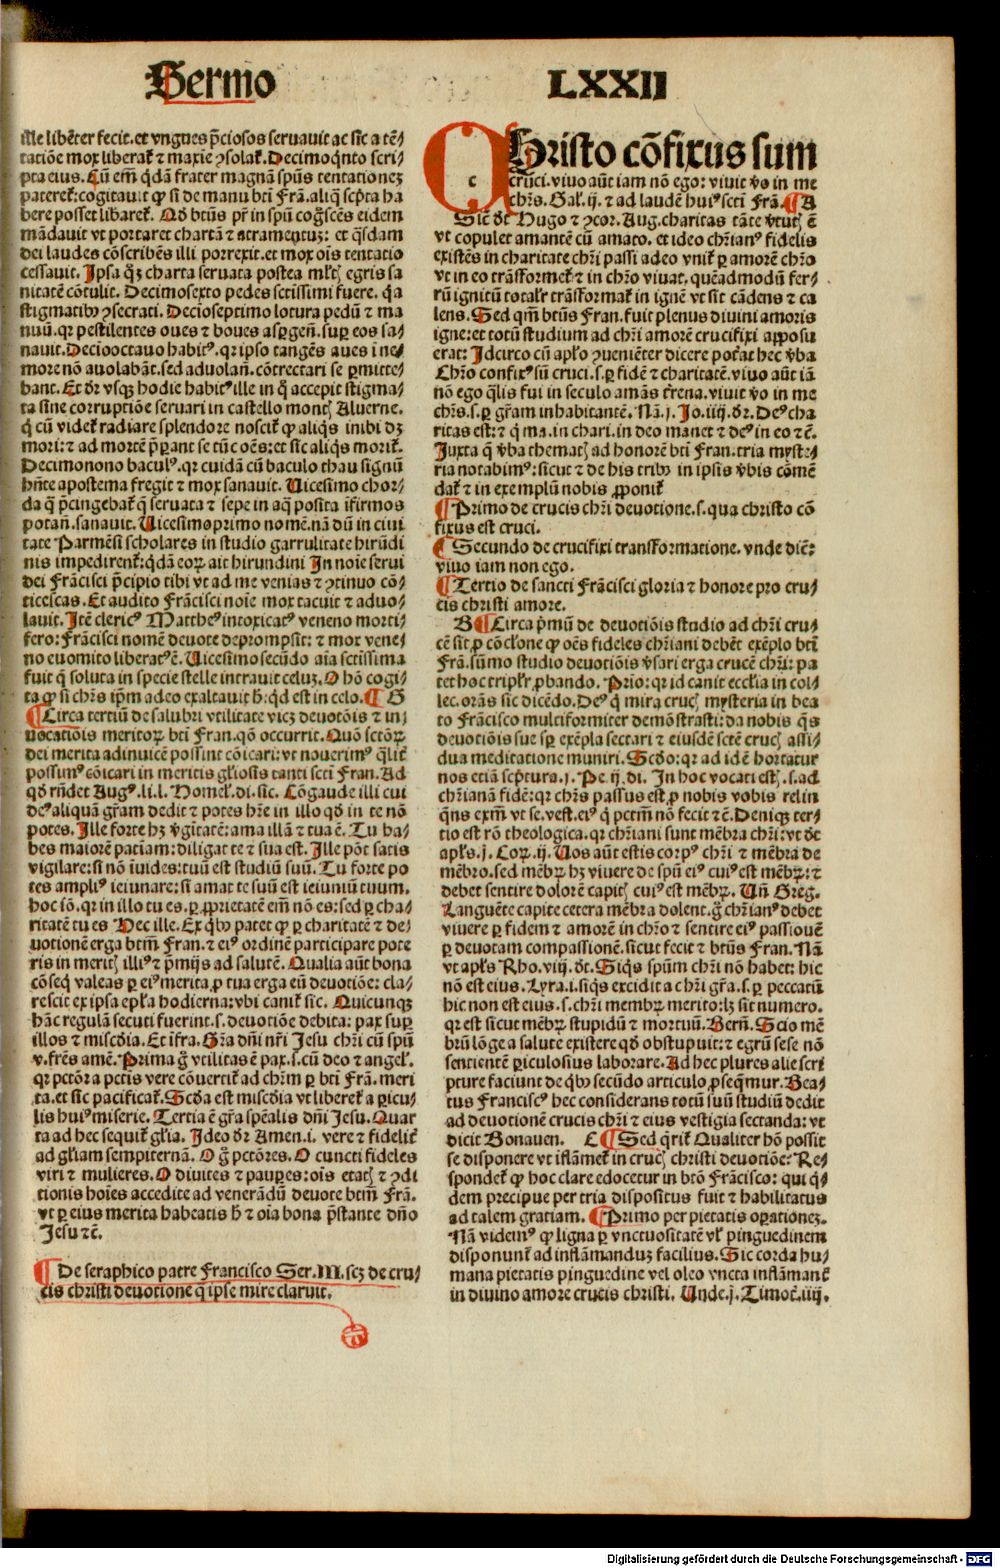 Sermo
LXXII
ille libēter fecit. et vngues p̄ciosos seruauit ac sic̄ a tē/
tatiōe mox liberat̉ ⁊ maxīe ꝯsolat̉. Decimoqnto scri/
pta eius. Cū em̄ q̄dā frater magnā spūs tentationeꝫ
pateret̉: cogitauit ꝙ si de manu bti Frā. aliq̄ scp̄ta ha
bere posset liberaret̉. Qd̄ btūs pr̄ in spū coḡscēs eidem
mādauit vt portaret chartā ⁊ atramentuꝫ: et q̄sdam
dei laudes cōscribēs illi porrexit. et mox ois tentatio
cessauit. Ipsa q̄ꝫ charta seruata postea mlt̄ꝭ egris sa
nitatē cōtulit. Decimosexto pedes sctissimi fuere. q̄a
stigmatibꝰ ꝯsecrati. Decioseptimo lotura pedū ⁊ ma
nuū. qr pestilentes oues ⁊ boues asp̱gen̄. suꝑ eos sa/
nauit. Deciooctauo habitꝰ. qr ipso tangēs aues ī ne/
more nō auolabāt. sed aduolan̄. cōtrectari se ꝑmitte/
bant. Et dr̄ vsqꝫ hodie habitꝰ ille in q̄ accepit stigma/
ta sine corruptiōe seruari in castello montꝭ Aluerne.
q̄ cū videt̉ radiare splendore noscit̉ ꝙ aliq̄s inibi dꝫ
mori: ⁊ ad mortē p̄parant se tūc oēs: et sic aliq̄s morit̉.
Decimonono baculꝰ. qr cuidā cū baculo thau signū
hn̄te apostema fregit ⁊ mox sanauit. Uicesimo chor/
da q̄ p̄cingebat̉ q̄ seruata ⁊ sepe in aq̄ posita īfirmos
potan̄. sanauit. Uicesimoprimo nomē. nā dū in ciui
tate Parmēsi scholares in studio garrulitate hirūdi
nis impedirent̉: q̄dā eoꝝ ait hirundini In noie serui
dei Frācisci p̄cipio tibi vt ad me venias ⁊ ꝯtinuo cō/
ticelcas. Et audito Frācisci noie mox tacuit ⁊ aduo/
lauit. Itē clericꝰ Mattheꝰ intoxicatꝰ veneno morti/
fero: Frācisci nomē deuote deprompsit: ⁊ mox vene/
no euomito liberatꝰ ē. Uicesimo secūdo aīa sctissima
fuit q̄ soluta in specie stelle intrauit celuꝫ. O hō cogi/
ta ꝙ si chrs̄ ip̄m adeo exaltauit h̄: qd̄ est in celo. ¶ G
¶ Circa tertiū de salubri vtilitate vicꝫ deuotōis ⁊ in/
uocatiōis meritoꝝ bti Fran. qō occurrit. Quō sctōꝝ
dei merita adinuicē possint cōicari: vt nouerimꝰ q̄lit̉
possimꝰ cōicari in meritis gl̄iosis tanti scti Fran. Ad
qd̄ rn̄det Augꝰ. li. l. Homel̉. di. sic. Cōgaude illi cui
deꝰ aliquā grām dedit ⁊ potes hr̄e in illo qd̄ in te nō
potes. Ille forte hꝫ v̄gitatē: ama illā ⁊ tua ē. Tu ha/
bes maiorē patiam: diligat te ⁊ sua est. Ille pōt satis
vigilare: si nō īuides: tuū est studiū suū. Tu forte po
tes ampliꝰ ieiunare: si amat te suū est ieiuniū tuum.
hoc iō. qr in illo tu es. ꝑ ꝓprietatē em̄ nō es: sed ꝑ cha/
ritatē tu es Hec ille. Ex qbꝰ patet ꝙ ꝑ charitatē ⁊ de/
uotionē erga btm̄ Fran. ⁊ eiꝰ ordinē participare pote
ris in meritꝭ illiꝰ ⁊ p̄mijs ad salutē. Qualia aūt bona
cōseq̄ valeas ꝑ eiꝰ merita ꝓ tua erga eū deuotiōe: cla/
rescit ex ipsa ep̄la hodierna: vbi canit̉ sic. Quicunqꝫ
hāc regulā secuti fuerint. s. deuotiōe debita: pax suꝑ
illos ⁊ miscdia. Et īfra. Gr̄a dn̄i nr̄i Jesu chr̄i cū spū
v. fr̄es amē. Prima g̊ vtilitas ē pax. s. cū deo ⁊ angel̉.
qr pctōra pctis vere cōuertit̉ ad chrm̄ ꝑ bti Frā. meri
ta. et sic pacificat̉. Scd̄a est miscdia vt liberet̉ a ꝑicu/
lis huiꝰ miserie. Tertia ē gr̄a spēalis dn̄i Jesu. Quar
ta ad hec sequit̉ gl̄ia. Ideo dr̄ Amen. i. vere ⁊ fidelit̉
ad gl̄iam sempiternā. O g̊ pctōres. O cuncti fideles
viri ⁊ mulieres. O diuites ⁊ pauꝑes: oīs etatꝭ ⁊ ꝯdi
tionis hoīes accedite ad venerādū deuote btm̄ Frā.
vt ꝑ eius merita habeatis h̄ ⁊ oīa bona p̄stante dn̄o
Jesu ⁊ c̄.
¶ De seraphico patre Francisco Ser. M. scꝫ de cru/
cis christi deuotione q̄ ipse mire claruit.
CHristo cōfixus sum
cruci. viuo aūt iam nō ego: viuit v̄o in me
chrs̄. Gal̉. ij. ⁊ ad laudē huiꝰ scti Frā. ¶ A
Sic̄ dt̄ Hugo ⁊ ꝯcor. Aug. charitas tāte v̄tutꝭ ē
vt copulet amantē cū amato. et ideo chr̄ianꝰ fidelis
existēs in charitate chr̄i passi adeo vnit̉ ꝑ amorē chr̄o
vt in eo trāsformet̉ ⁊ in chr̄o viuat. quēadmodū fer/
rū ignitū totalr̄ trāsformat̉ in ignē vt sit cādens ⁊ ca
lens. Sed qm̄ btūs Fran. fuit plenus diuini amoris
igne: et totū studium ad chr̄i amorē crucifixi apposu
erat: Idcirco cū apl̄o ꝯueniēter dicere pot̉at hec v̄ba
Chr̄o confixꝰ sū cruci. s. ꝑ fidē ⁊ charitatē. viuo aūt iā
nō ego q̄lis fui in seculo amās tr̄rena. viuit v̄o in me
chrs̄. s. ꝑ gr̄am inhabitantē. Nā. j. Jo. iiij. dr̄. Deꝰ cha
ritas est: ⁊ q̄ ma. in chari. in deo manet ⁊ deꝰ in eo ⁊ c̄.
Juxta q̄ v̄ba thematꝭ ad honorē bti Fran. tria myste/
ria notabimꝰ: sicut ⁊ de his tribꝰ in ipsis v̄bis cōmē
dat̉ ⁊ in exemplū nobis ꝓponit̉
¶ Primo de crucis chr̄i deuotione. s. qua christo cō
fixus est cruci.
¶ Secundo de crucifixi transformatione. vnde dic̄:
viuo iam non ego.
¶ Tertio de sancti Frācisci gloria ⁊ honore pro cru/
cis christi amore.
B ¶ Circa p̄mū de deuotiōis studio ad chr̄i cru/
cē sit ꝓ cōcl̄one ꝙ oēs fideles chr̄iani debēt exēplo bti
Frā. sūmo studio deuotiōis v̄sari erga crucē chr̄i: pa
tet hoc triplr̄ ꝓbando. Prīo: qr id canit ecclīa in col/
lec. orās sic dicēdo. Deꝰ q̄ mira crucꝭ mysteria in bea
to Frācisco multiformiter demōstrasti: da nobis q̄s
deuotiōis sue sꝑ exēpla sectari ⁊ eiusdē sctē crucꝭ assi/
dua meditatione muniri. Scd̄o: qr ad idē hortatur
nos etiā scp̄tura. j. Pe. ij. di. In hoc vocati estꝭ. s. ad
chr̄ianā fidē: qr chrs̄ passus est ꝓ nobis vobis relin
q̄ns exm̄ vt se. vest. eiꝰ q̄ pctm̄ nō fecit ⁊ c̄. Deniqꝫ ter/
tio est rō theologica. qr chr̄iani sunt mēbra chr̄i: vt dt̄
apl̄s. j. Coꝝ. ij. Uos aūt estis corpꝰ chr̄i ⁊ mēbra de
mēbro. sed mēbꝝ hꝫ viuere de spū eiꝰ cuiꝰ est mēbꝝ: ⁊
debet sentire dolorē capitꝭ cuiꝰ est mēbꝝ. Un̄ Greg.
Languēte capite cetera mēbra dolent. g̊ chr̄ianꝰ debet
viuere ꝑ fidem ⁊ amorē in chr̄o ⁊ sentire eiꝰ passionē
ꝑ deuotam compassionē. sicut fecit ⁊ btūs Fran. Nā
vt apl̄s Rho. viij. dt̄. Siq̄s spūm chr̄i nō habet: hic
nō est eius. Lyra. i. siq̄s excidit a chr̄i gr̄a. s. ꝑ peccatū
hic non est eius. s. chr̄i membꝝ merito: lꝫ sit numero.
qr est sicut mēbꝝ stupidū ⁊ mortuū. Bern̄. Scio mē
brū lōge a salute existere qd̄ obstupuit: ⁊ egrū sese nō
sentientē ꝑiculosius laborare. Ad hec plures alie scri
pture faciunt de qbꝰ secūdo articulo ꝓseqmur. Bea/
tus Franciscꝰ hec considerans totū suū studiū dedit
ad deuotionē crucis chr̄i ⁊ eius vestigia sectanda: vt
dicit Bonauen. C ¶ Sed q̄rit̉ Qualiter hō possit
se disponere vt iflāmet̉ in crucꝭ christi deuotiōe: Re/
spondet̉ ꝙ hoc clare edocetur in btō Francisco: qui q̄/
dem precipue per tria dispositus fuit ⁊ habilitatus
ad talem gratiam. ¶ Primo per pietatis oꝑationeꝫ.
Nā videmꝰ ꝙ ligna ꝑ vnctuositatē vl̉ pinguedinem
disponunt̉ ad inflāmanduꝫ facilius. Sic corda hu/
mana pietatis pinguedine vel oleo vncta inflāmant̉
in diuino amore crucis christi. Unde. j. Timot̉. iiij.
Digitalisierung gefördert durch die Deutsche Forschungsgemeinschaft - DFG